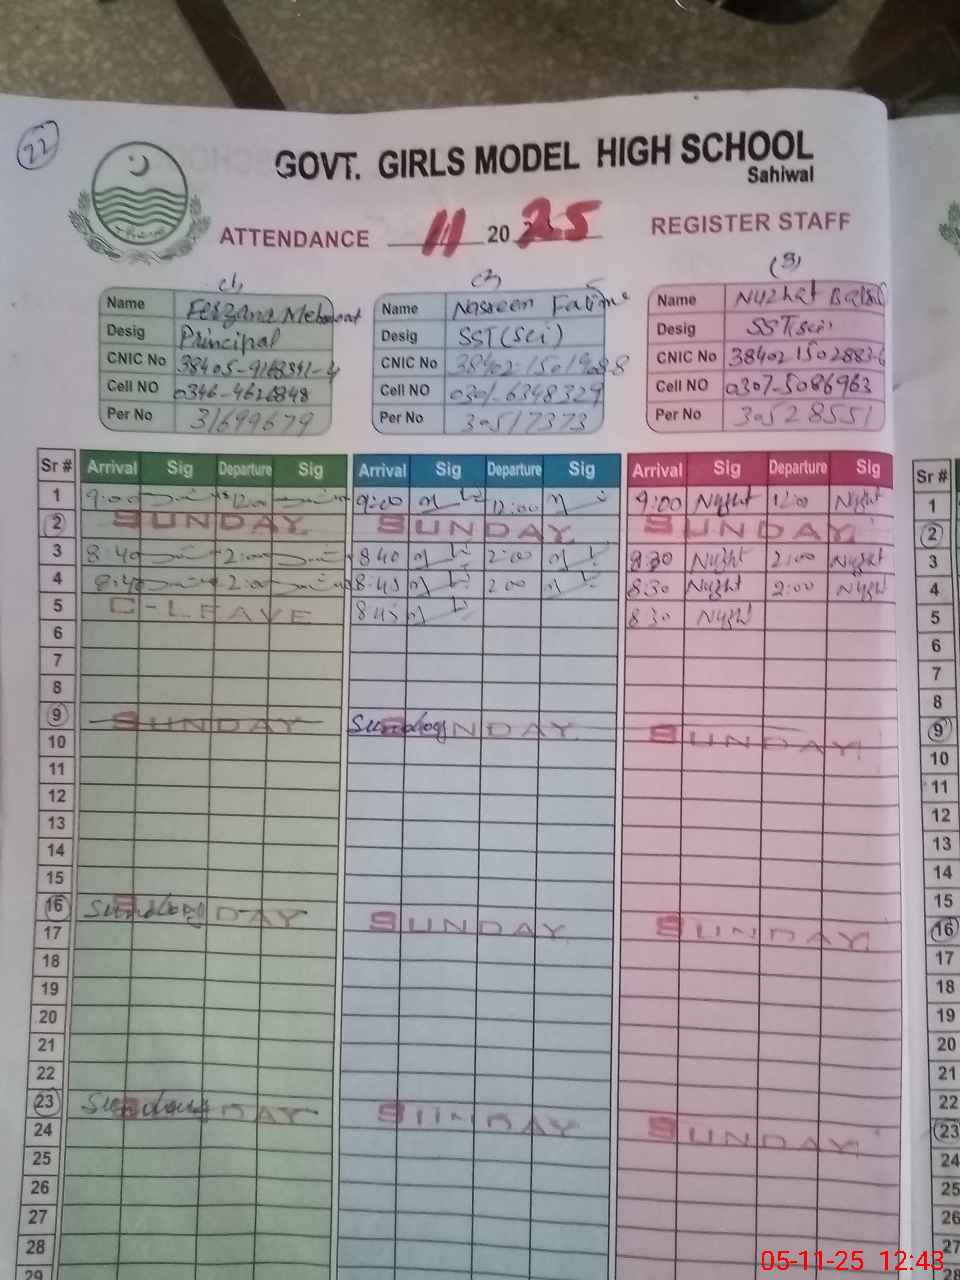 22
GOVT. GIRLS MODEL HIGH SCHOOL
Sahiwal
ATTENDANCE 11 2025 REGISTER STAFF
(1) (2) (3)
Name Ferzana Name Nasreen Fatima Name Nuzhat
Desig Principal Desig SST(Sci) Desig SST(Sci)
CNIC No CNIC No CNIC No
Cell NO 0346-4626848 Cell NO 0301-6348329 Cell NO 0307-5086963
Per No 31699679 Per No 30517373 Per No 30528551
Sr # Arrival Sig Departure Sig Arrival Sig Departure Sig Arrival Sig Departure Sig Sr #
1 9:00 12:00 9:00 12:00 9:00 Nuzhat 12:00 Nuzhat 1
2 SUNDAY SUNDAY SUNDAY 2
3 8:40 2:00 8:40 2:00 8:30 Nuzhat 2:00 Nuzhat 3
4 8:40 2:00 8:45 2:00 8:30 Nuzhat 2:00 Nuzhat 4
5 C-LEAVE 8:45 8:30 Nuzhat 5
6 6
7 7
8 8
9 SUNDAY Sunday SUNDAY SUNDAY 9
10 10
11 11
12 12
13 13
14 14
15 15
16 Sunday SUNDAY SUNDAY SUNDAY 16
17 17
18 18
19 19
20 20
21 21
22 22
23 Sunday SUNDAY SUNDAY SUNDAY 23
24 24
25 25
26 26
27 27
28 28
29
05-11-25 12:43